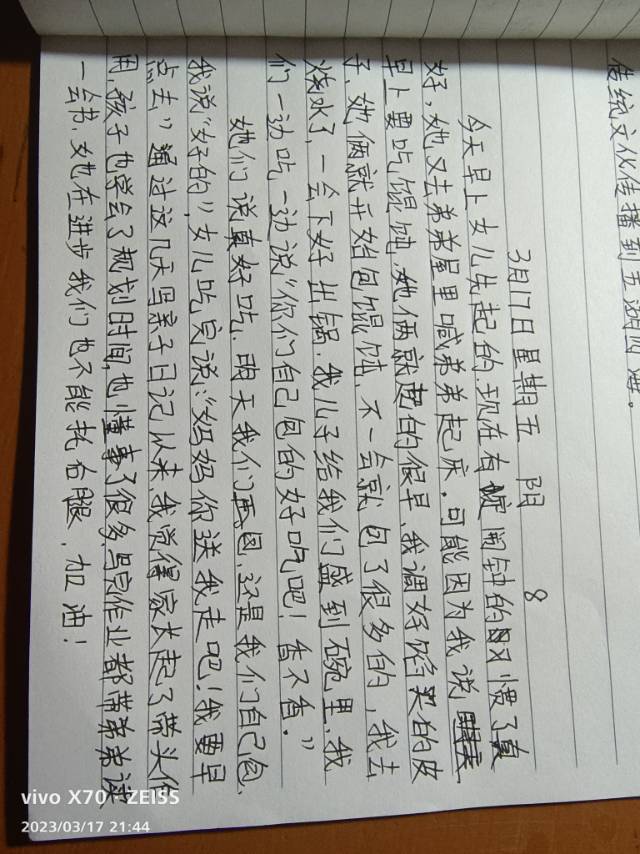 传统文化传播到五湖四海。
3月17日 星期五 阴 8
今天早上女儿先起的,现在有定闹钟的习惯了真
好,她又去弟弟屋里喊弟弟起床。可能因为我说
早上要吃馄饨,她俩就起的很早,我调好馅买的皮
子,她俩就开始包馄饨,不一会就包了很多的,我去
烧水了,一会下好出锅,我儿子给我们盛到碗里,我
们一边吃一边说“你们自己包的好吃吧!香不香。”
她们说真好吃,明天我们再包,还是我们自己包,
我说“好的”,女儿吃完说:“妈妈你送我走吧!我要早
点去”通过这几天写亲子日记以来,我觉得家长起了带头作
用,孩子也学会了规划时间,也懂事了很多写完作业都带弟弟读
一会书,她在进步我们也不能拖后腿,加油!
vivo X70 · ZEISS
2023/03/17 21:44